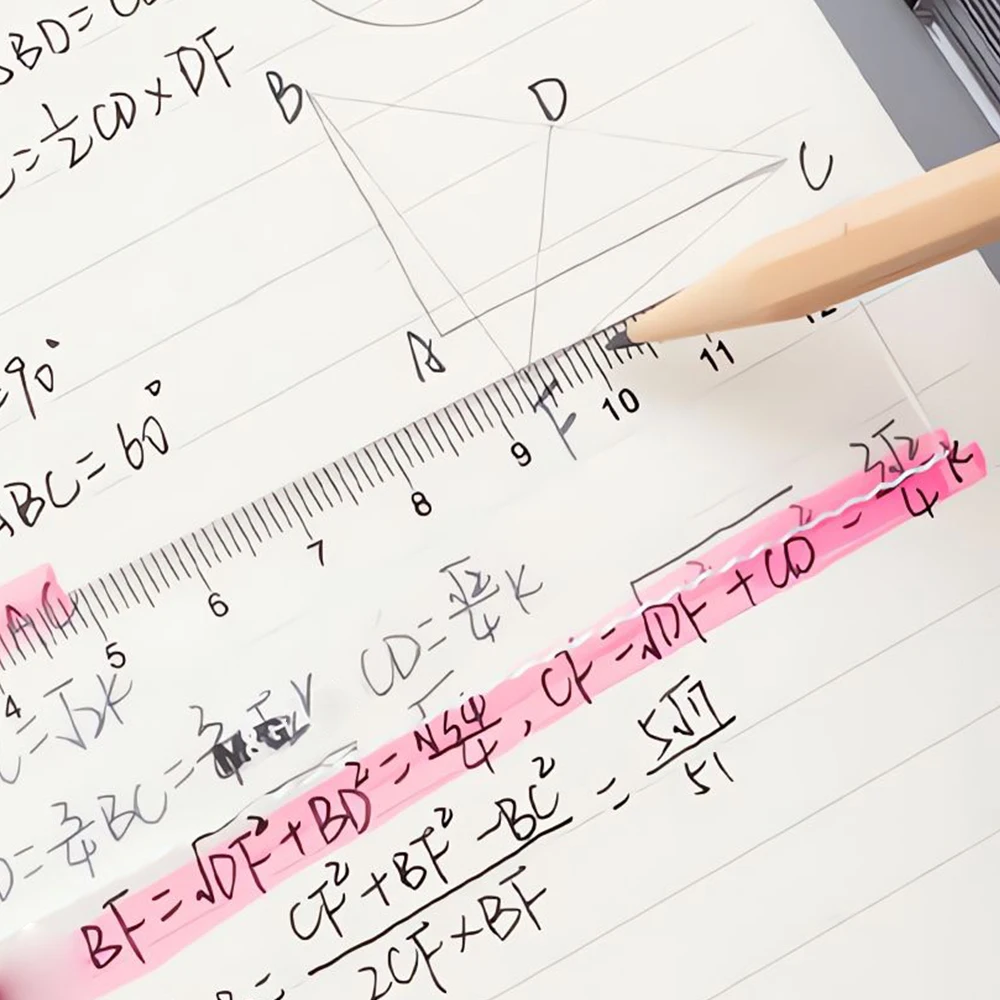 BD=
=½CD×DF
B D C
A
F
=90°
ABC=60°
4 5 6 7 8 9 10 11 12
AC
=√2K
CD=√2/4 K
D=3/4BC=
BF=√DF²+BD²=√34/4, CF=√DF²+CD²-3√2/4 K
CF²+BF²-BC²/2CF×BF=5√17/51